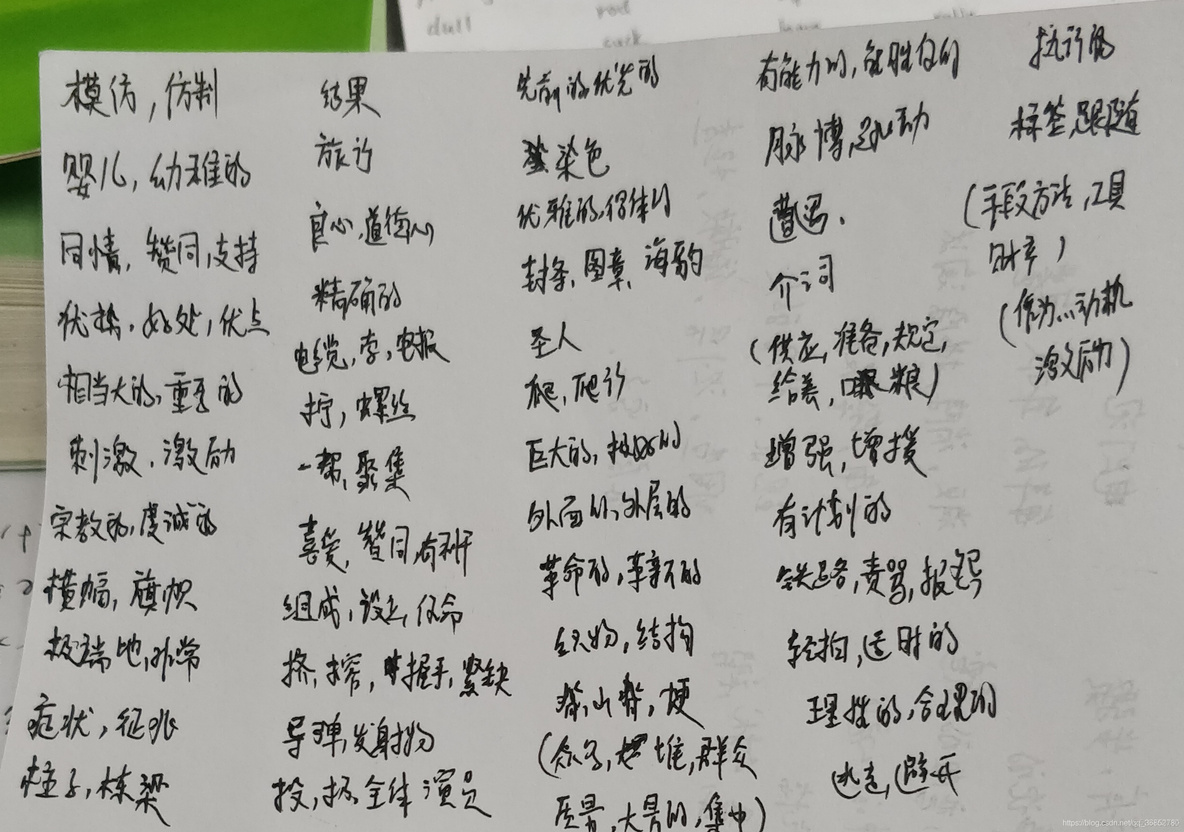 dull
模仿,仿制
婴儿,幼稚的
同情,赞同,支持
优势,好处,优点
相当大的,重要的
刺激,激励
宗教的,虔诚的
横幅,旗帜
极端地,非常
症状,征兆
柱子,栋梁
结果
旅行
良心,道德心
精确的
电缆,索,电报
拧,螺丝
一帮,聚集
喜爱,赞同,有利于
组成,设立,任命
挤,榨,握手,紧缺
导弹,发射物
投,扔,全体演员
先前的,优先的
染色
优雅的,得体的
封条,图章,海豹
圣人
爬,爬行
巨大的,极好的
外面的,外层的
革命的,革新的
织物,结构
脊,山脊,埂
(众多,堆,群众
质量,大量的,集中)
有能力的,能胜任的
脉搏,跳动
遭遇,
介词
(供应,准备,规定,
给养,粮)
增强,增援
有计划的
铁路,责骂,抱怨
轻拍,适时的
理性的,合理的
逃走,避开
执行的
标签,跟随
(手段方法,工具
财产)
(作为…动机
激励)
https://blog.csdn.net/qq_36852780